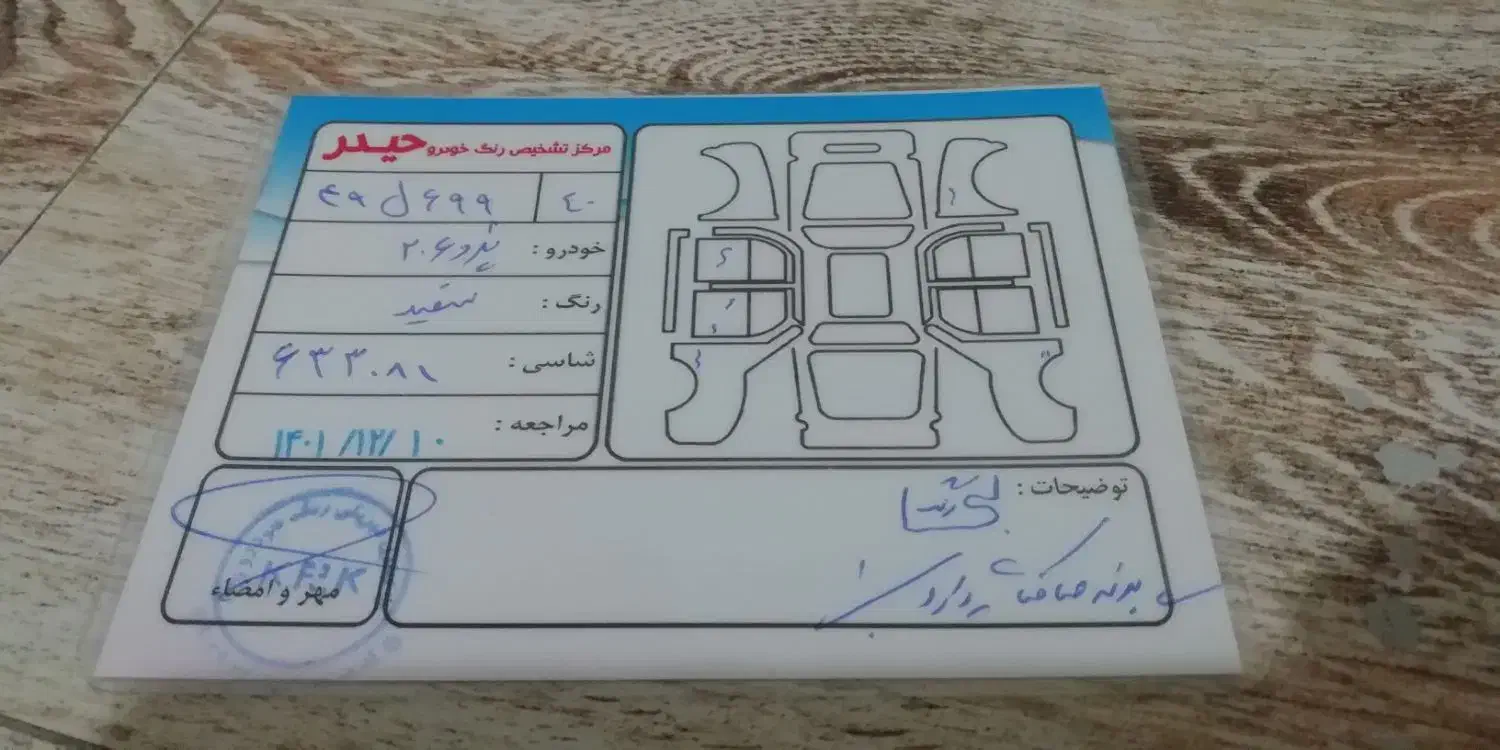 مرکز تشخیص رنگ خودرو حیدر
۴۹ ل ۶۹۹ ۴۰
خودرو : پژو ۲۰۶
رنگ : سفید
شاسی : ۶۳۳۰۸۱
مراجعه : ۱۴۰۱/۱۲/۱۰
توضیحات : بی رنگ
بدنه صافکاری دارد
مهر و امضاء